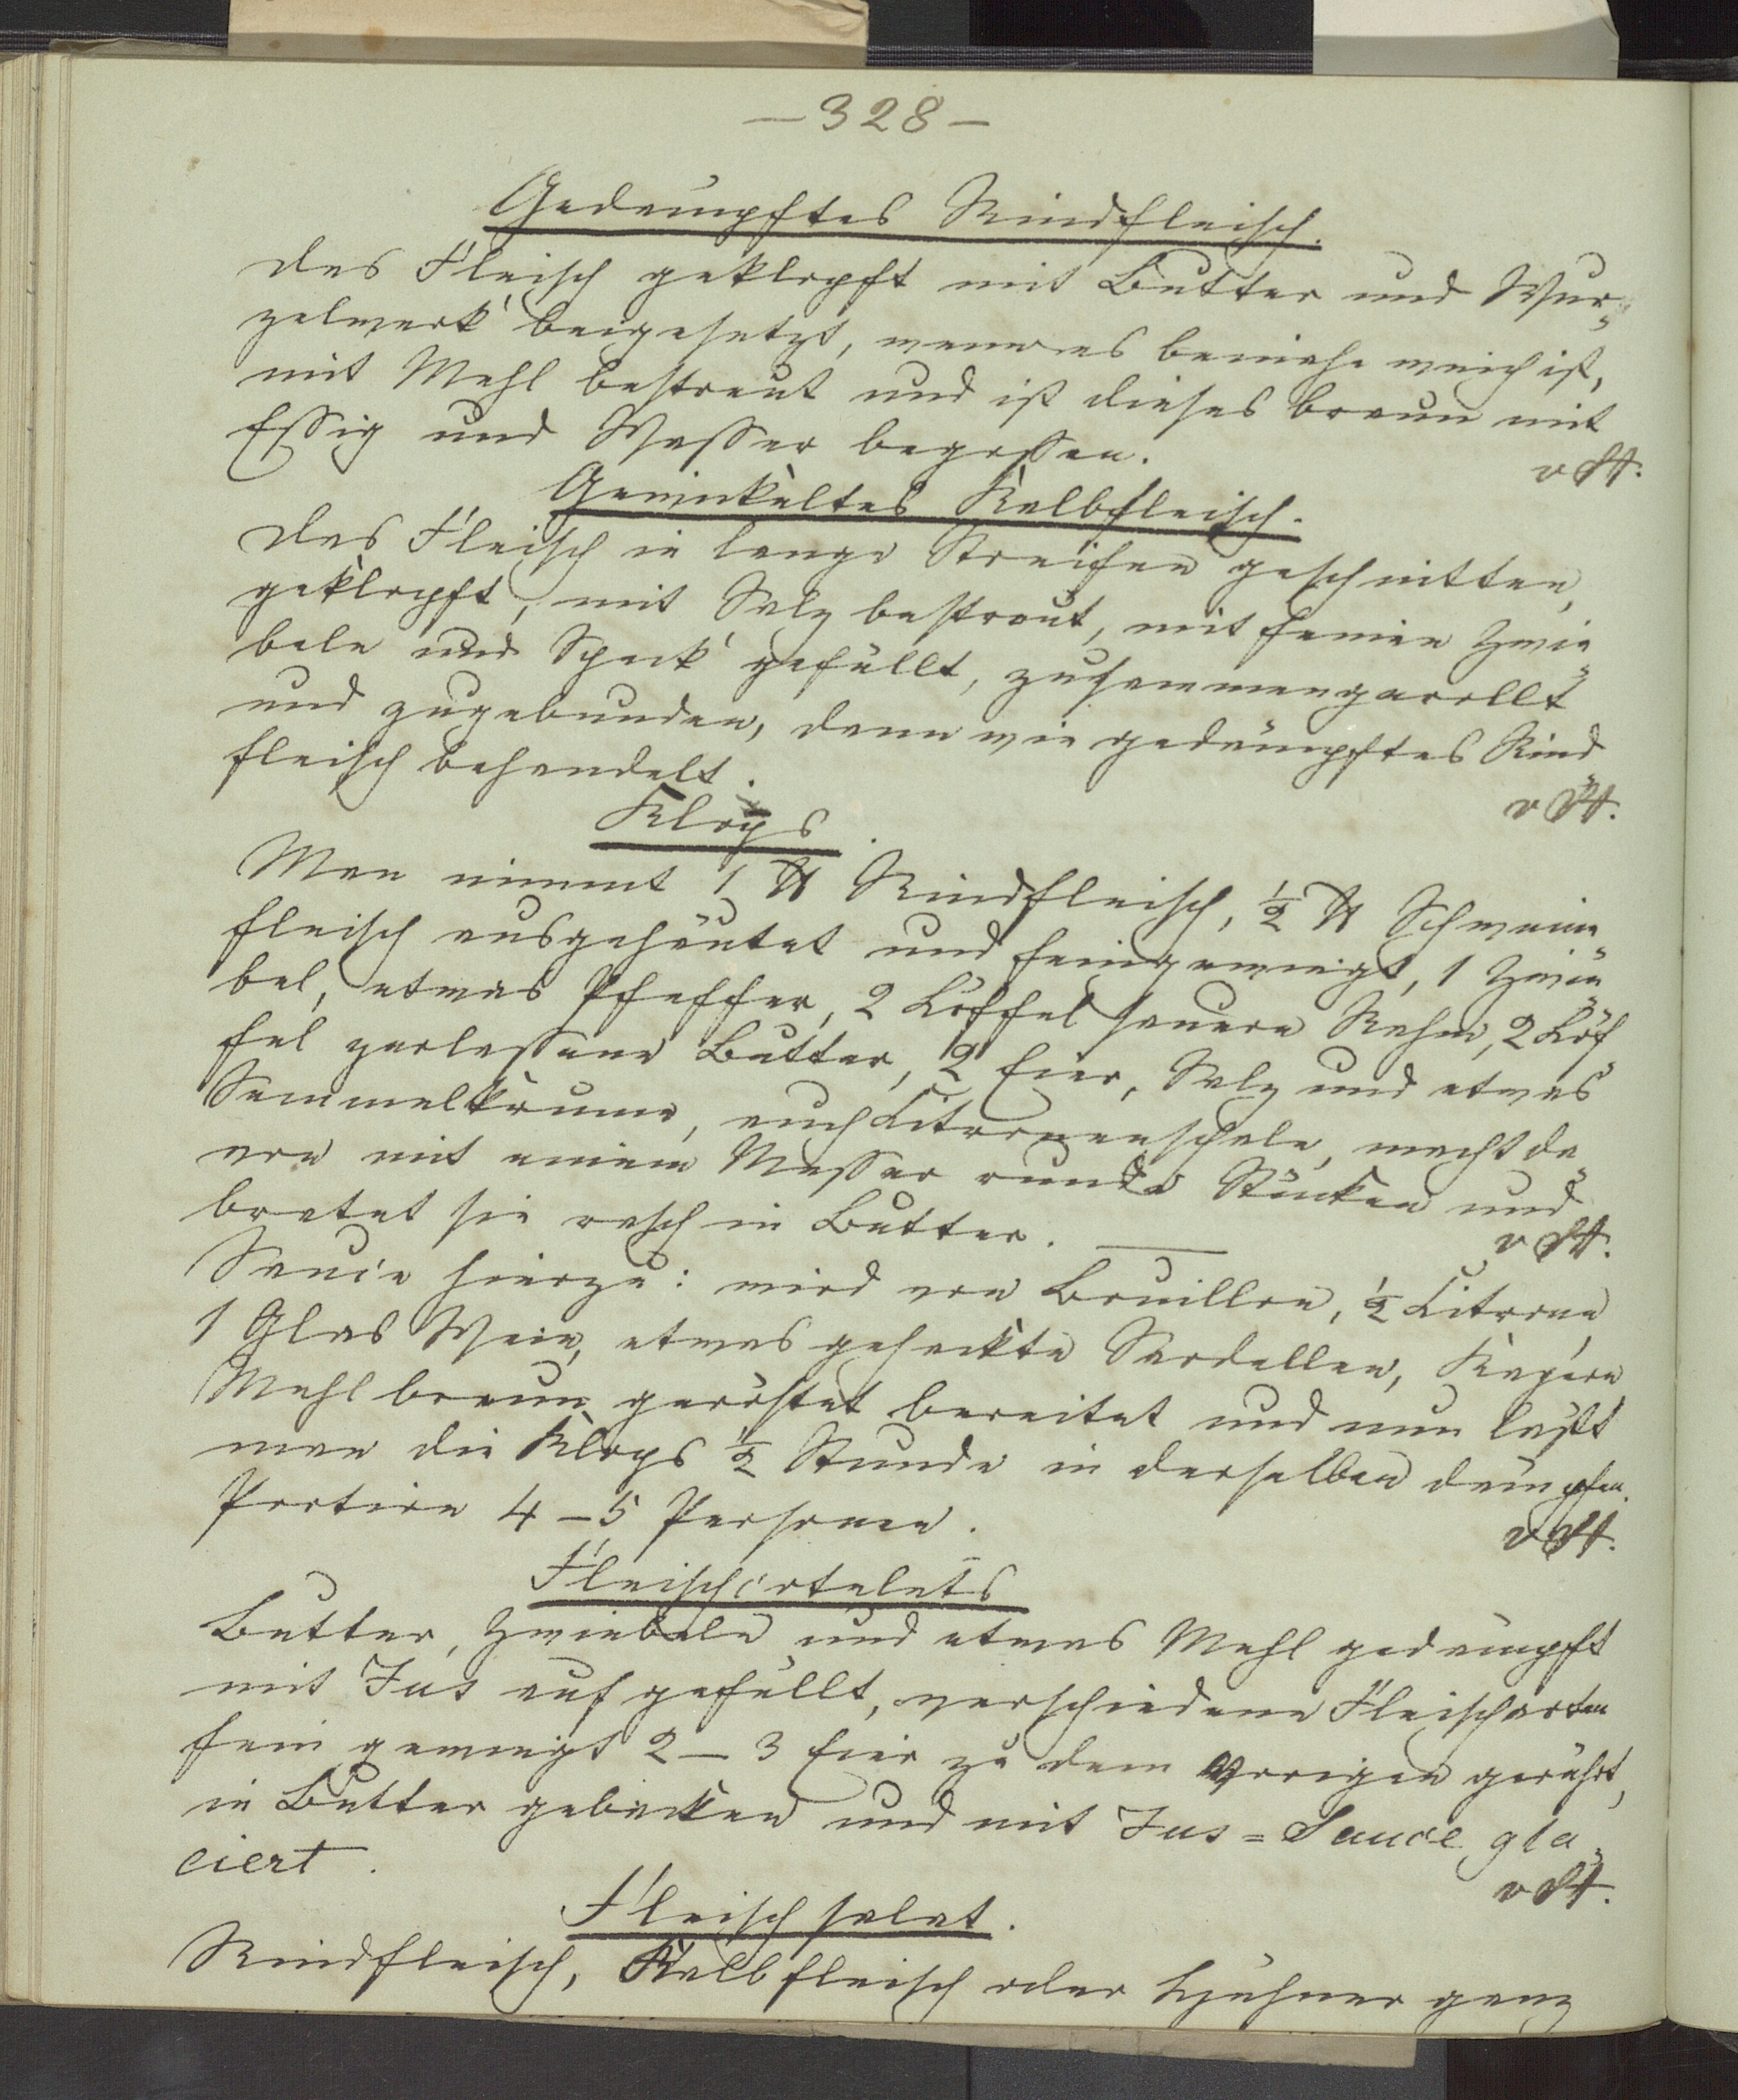 — 328 —
Gedämpftes Rindfleisch.
Das Fleisch geklopft mit Butter und Wur=
zelwerk beigesetzt, wenn es beinahe weich ist,
mit Mehl bestreut und ist dieses braun mit
Essig und Wasser begossen.
v St.
Gewinkeltes Kalbfleisch.
Das Fleisch in lange Streifen geschnitten,
geklopft, mit Salz bestreut, mit feinen Zwie=
beln und Speck gefüllt, zusammengerollt
und zugebunden, dann wie gedämpftes Rind=
fleisch behandelt.
v St.
Klops.
Man nimmt 1 ℔ Rindfleisch, ½ ℔ Schweine=
fleisch ausgehäutet und feingewiegt, 1 Zwie=
bel, etwas Pfeffer, 2 Löffel sauern Rahm, 2 Löf=
fel zerlassene Butter, 2 Eier, Salz und etwas
Semmelkrume, auch Citronenschale, macht da=
von mit einem Messer runde Stücken und
bratet sie rasch in Butter. —
v St.
Sauce hierzu: wird von Bouillon, ½ Citrone,
1 Glas Wein, etwas gehackte Sardellen, Kapern,
Mehl braun geröstet bereitet und nun läßt
man die Klops ½ Stunde in derselben dämpfen.
Portion 4 – 5 Personen.
v St.
Fleischcotelets
Butter, Zwiebeln und etwas Mehl gedämpft
mit Jus aufgefüllt, verschiedene Fleischarten
fein gewiegt 2 – 3 Eier zu dem Vorigen gerührt,
in Butter gebacken und mit Jus=Sauce gla=
ciert.
v St.
Fleischsalat.
Rindfleisch, Kalbfleisch oder Hühner ganz